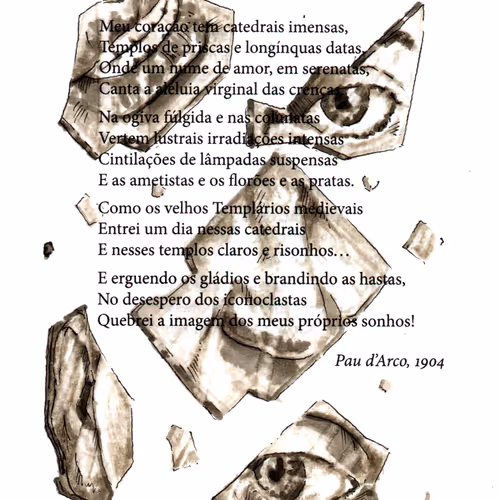 Meu coração tem catedrais imensas,
Templos de priscas e longínquas datas,
Onde um nume de amor, em serenatas,
Canta a aleluia virginal das crenças.
Na ogiva fúlgida e nas colunatas
Vertem lustrais irradiações intensas
Cintilações de lâmpadas suspensas
E as ametistas e os florões e as pratas.
Como os velhos Templários medievais
Entrei um dia nessas catedrais
E nesses templos claros e risonhos…
E erguendo os gládios e brandindo as hastas,
No desespero dos iconoclastas
Quebrei a imagem dos meus próprios sonhos!
Pau d’Arco, 1904